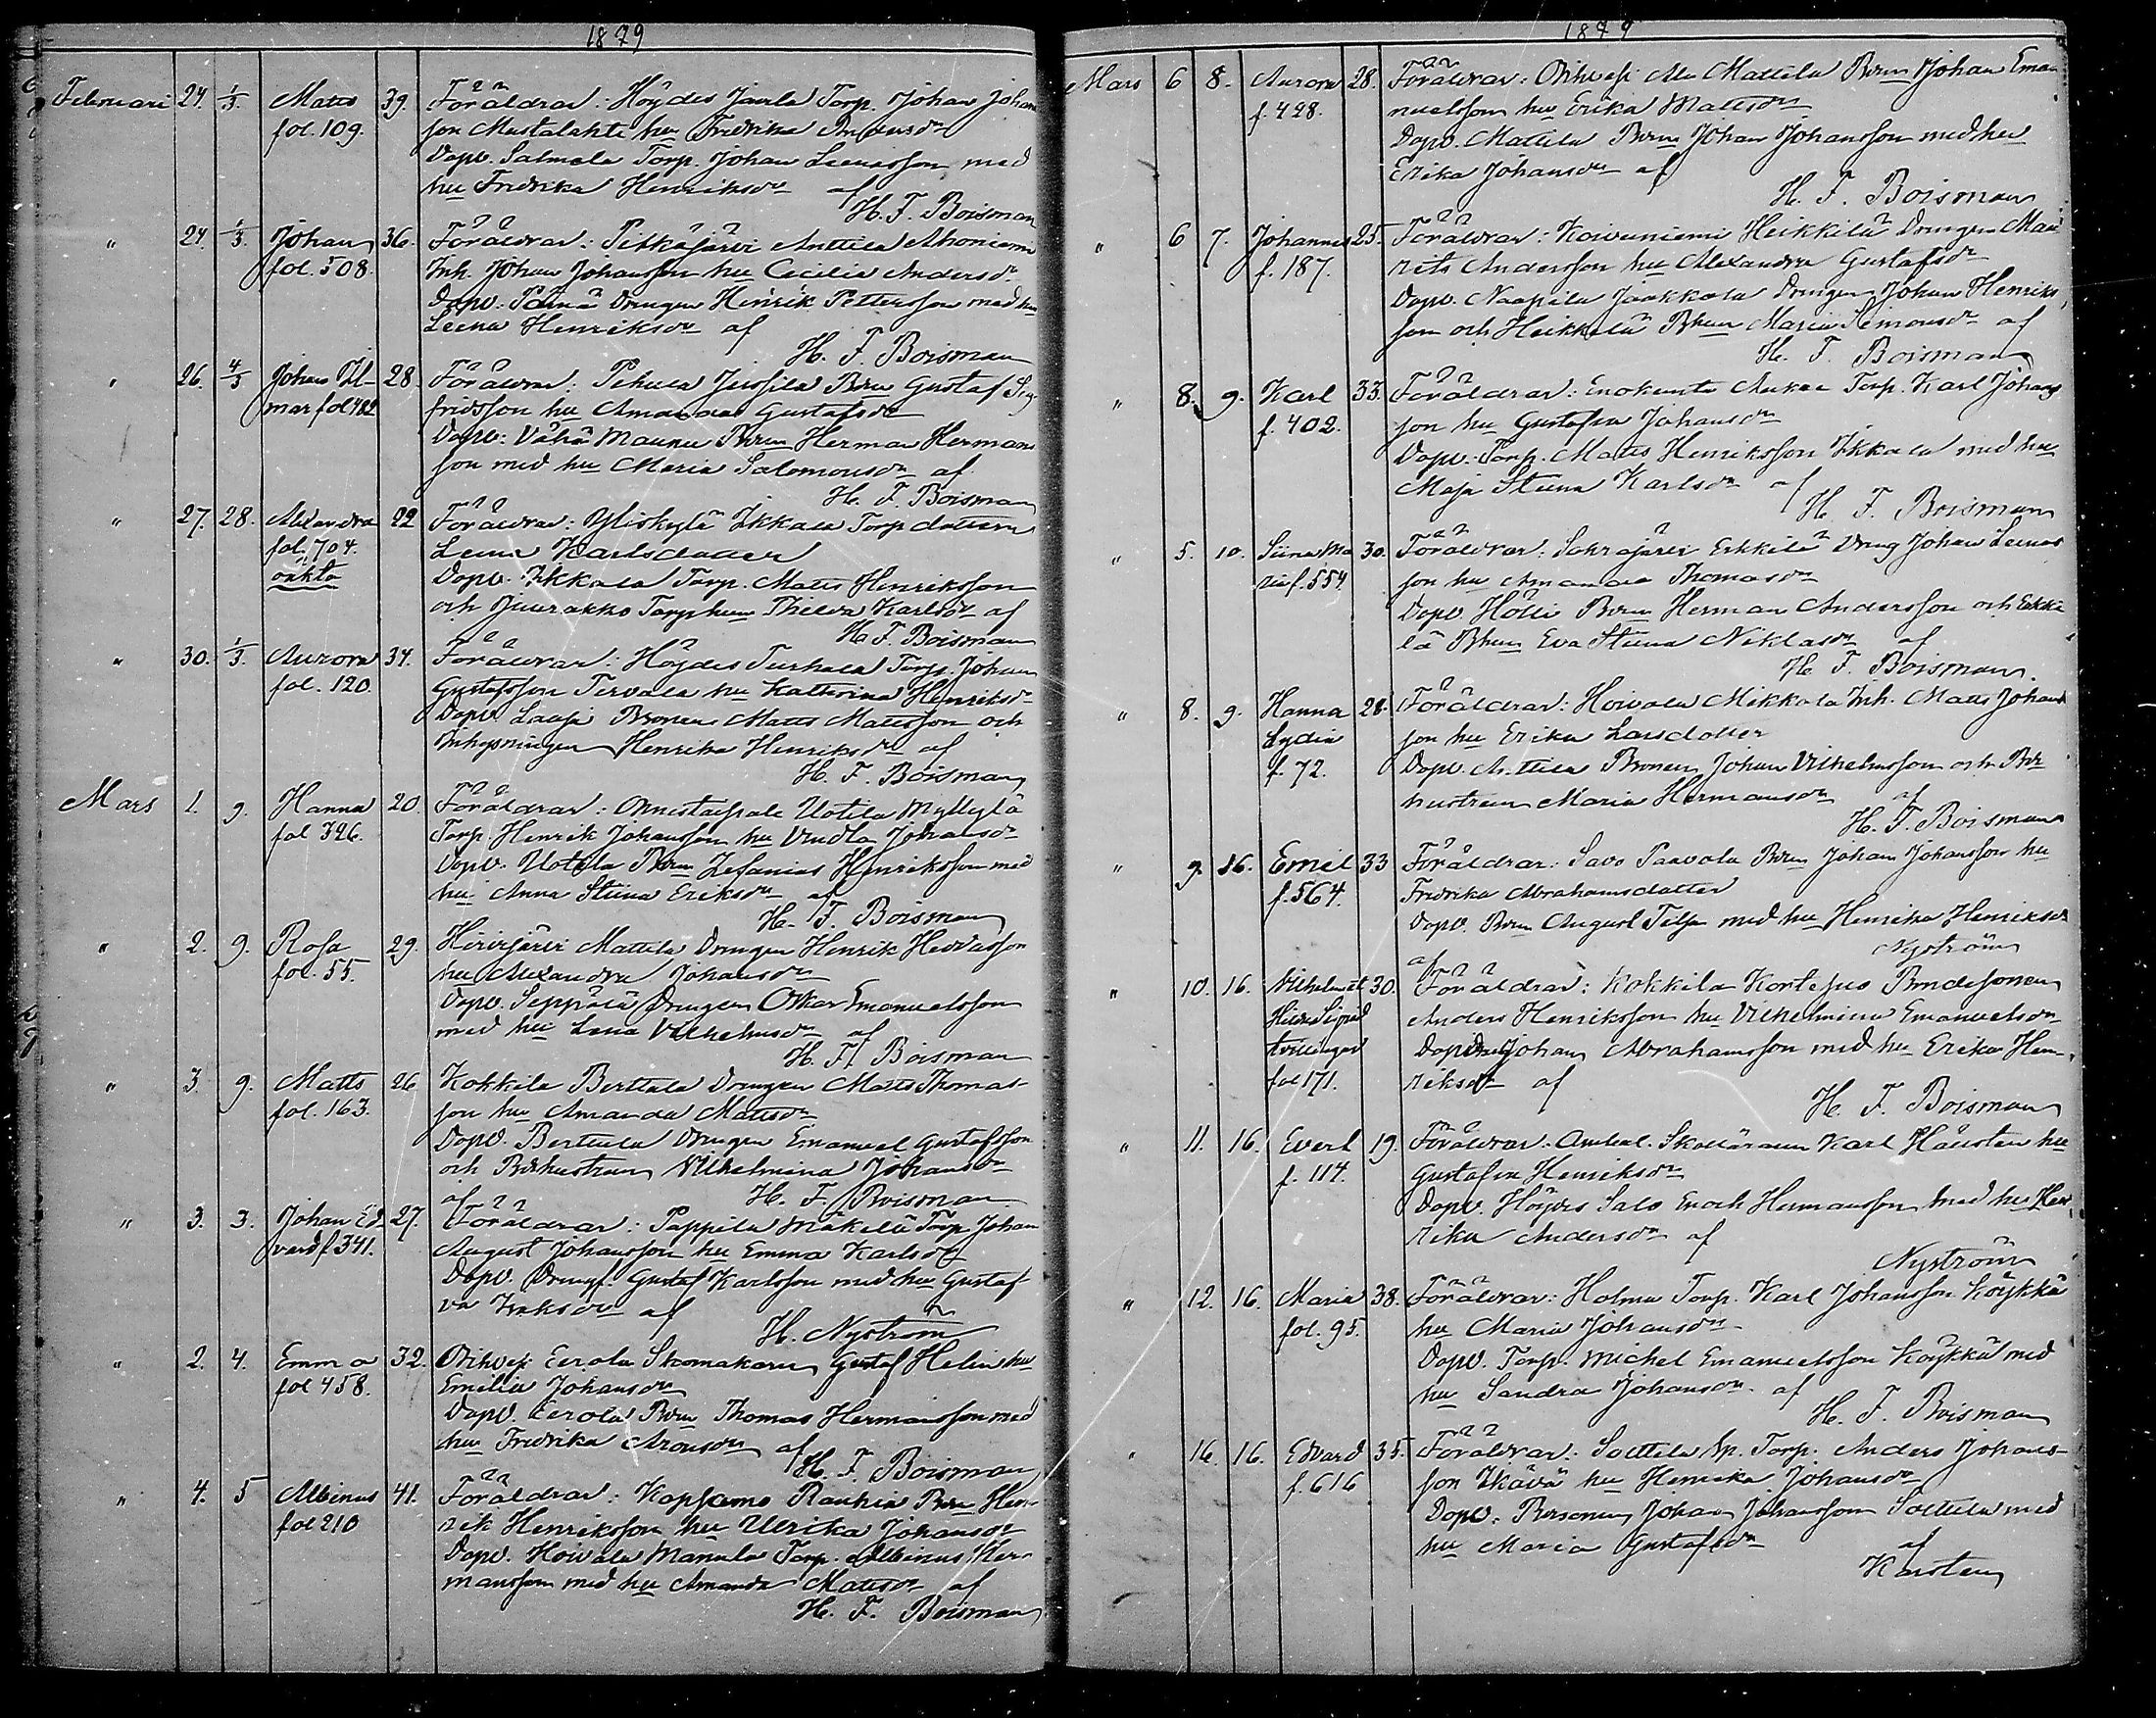 1879
Februari 24. 1/3. Matts 39. Föräldrar: Höydes Jaurla Torp. Johan Johans
fol. 109. son Mustalahti hu Fredrika
Dopv. Salmela Torp. Johan Leenasson med
hu Fredrika Henriksdr af
H. F. Boisman
" 24. 1/3. Johan 36. Föräldrar: Pitkäjärvi Anttila Ahoniemi
fol. 508. Inh. Johan Johansson hu Cecilia Andersdr
Dopv. Drengen Henrik Pettersson med hu
Leena Henriksdr af
H. F. Boisman
" 26. 4/3 Johan Il- 28. Föräldrar: Pehula Jussila Bdn Gustaf Sig-
mar fol 482 fridsson hu Amanda Gustafsdr
Dopv: Vähä Maunu Bdn Herman Hermans
son med hu Maria Salomonsdr af
H. F. Boisman
" 27. 28. Alexandra 22 Föräldrar: Yliskylä Ikkala Torp dottern
fol. 704. Leena Karlsdotter
oäkta Dopv. Ikkala Torp. Matts Henriksson
och Juurakko Torphun Karlsdr af
H. F. Boisman
" 30. 1/3. Aurora 34. Föräldrar: Höydes Turhala Torp. Johan
fol. 120. Gustafsson Tervala hu Katharina Henriksdr
Dopv. Laasi Bonden Matts Mattsson och
Inhysningen Henrika Henriksdr af
H. F. Boisman
Mars 1. 9. Hanna 20. Föräldrar: Onnistaipale Uotila Myllylä
fol 326. Torp. Henrik Johansson hu Vendla Johansdr
Dopv. Uotila Bdn Zefanias Henriksson med
hu Anna Stiina Eriksdr af
H. F. Boisman
" 2. 9. Rosa 29. Hirvijärvi Mattila Drengen Henrik Hedvasson
fol. 55. hu Alexandra Johansdr
Dopv. Seppälä Drengen Oskar Emanuelsson
med hu Lena Vilhelmsdr af
H. F. Boisman
" 3. 9. Matts 26 Kokkila Berttula Drengen Matts Thomas-
fol. 163. son hu Amanda Mattsdr
Dopv. Berttula Drengen Emanuel Gustafsson
och Bdhustrun Vilhelmina Johansdr
af H. F. Boisman
" 3. 3. Johan Ed- 27. Föräldrar: Pappila Mäkelä Torp Johan
vard f 341. August Johansson hu Emma Karlsdr
Dopv. Drengs. Gustaf Karlsson med hu Gustaf
va Isaksdr af
H. Nyström
" 2. 4. Emma 32. Orihvesi Eerola Skomakaren Gustaf Helin hu
fol 458. Emilia Johansdr
Dopv. Eerola Bdn Thomas Hermansson med
hu Fredrika Aronsdr af
H. F. Boisman
" 4. 5 Albinus 41. Föräldrar: Kapsamo Rauhia Bdn Hen-
fol 210 rik Henriksson hu Ulrika Johansdr
Dopv. Hoivala Manula Torp. Albinus Her-
mansson med hu Amanda Mattsdr af
H. F. Boisman
1879
Mars 6 8. Aurora 28. Föräldrar: Orihvesi Ala Mattila Bdn Johan Ema
f. 428. nuelsson hu Erika Mattsdr
Dopv. Mattila Bdn Johan Johansson med hu
Erika Johansdr af
H. F. Boisman
" 6 7. Johannes 25. Föräldrar: Koivuniemi Heikkilä Drengen Mau
f. 187. rits Andersson hu Alexandra Gustafsdr
Dopv. Naapila Jaakkola Drengen Johan Henriks
son och Heikkilä Bhun Maria Simonsdr af
H. F. Boisman
" 8. 9. Karl 33. Föräldrar: Enokunta Aukee Torp. Karl Johans
f. 402. son hu Gustafva Johansdr
Dopv. Torp. Matts Henriksson Ikkala med hu
Maja Stiina Karlsdr af
H. F. Boisman
" 5. 10. Siina Ma 30. Föräldrar: Sahrajärvi Erkkilä Dreng Johan Leenas
ria f. 554. son hu Amanda Thomasdr
Dopv Hölli Bdn Herman Andersson och Erkki
lä Bhun Eva Stiina Niklasdr af
H. F. Boisman.
" 8. 9. Hanna 28. Föräldrar: Hoivala Mikkola Inh. Matts Johans
Lydia son hu Erika Larsdotter
f. 72. Dopv. Anttila Bonden Johan Vilhelmsson och Bd
hustrun Maria Hermansdr af
H. F. Boisman
" 9. 16. Emil 33 Föräldrar: Savo Paavola Bdn Johan Johansson hu
f. 564. Fredrika Abrahamsdotter
Dopv. Bdn August Filpu med hu Henrika Henriksdr
af Nyström
" 10. 16. Vilhelm et 30. Föräldrar: Kokkila Kortesus Bondesonen
Hilda Sigrid Anders Henriksson hu Vilhelmina Emanuelsdr
tvillingar Dopv. Johan Abrahamsson med hu Erika Hen-
fol 171. riksdr af
H. F. Boisman
" 11. 16. Evert 19. Föräldrar: Ambul. Skolläraren Karl Hållsten hu
f. 114. Gustafva Henriksdr
Dopv. Höydes Salo Enoch Hermansson med hu Hen
rika Andersdr af
Nyström
" 12. 16. Maria 38. Föräldrar: Holma Torp. Karl Johansson Köykkä
fol. 95. hu Maria Johansdr
Dopv. Torp. Michel Emanuelsson Köykkä med
hu Sandra Johansdr. af
H. F. Boisman
" 16. 16. Edvard 35. Föräldrar: Soltila Torp. Anders Johans-
f. 616 son Ikävä hu Henrika Johansdr
Dopv. Johan Johansson Soltila med
hu Maria Gustafsdr af
Karsten